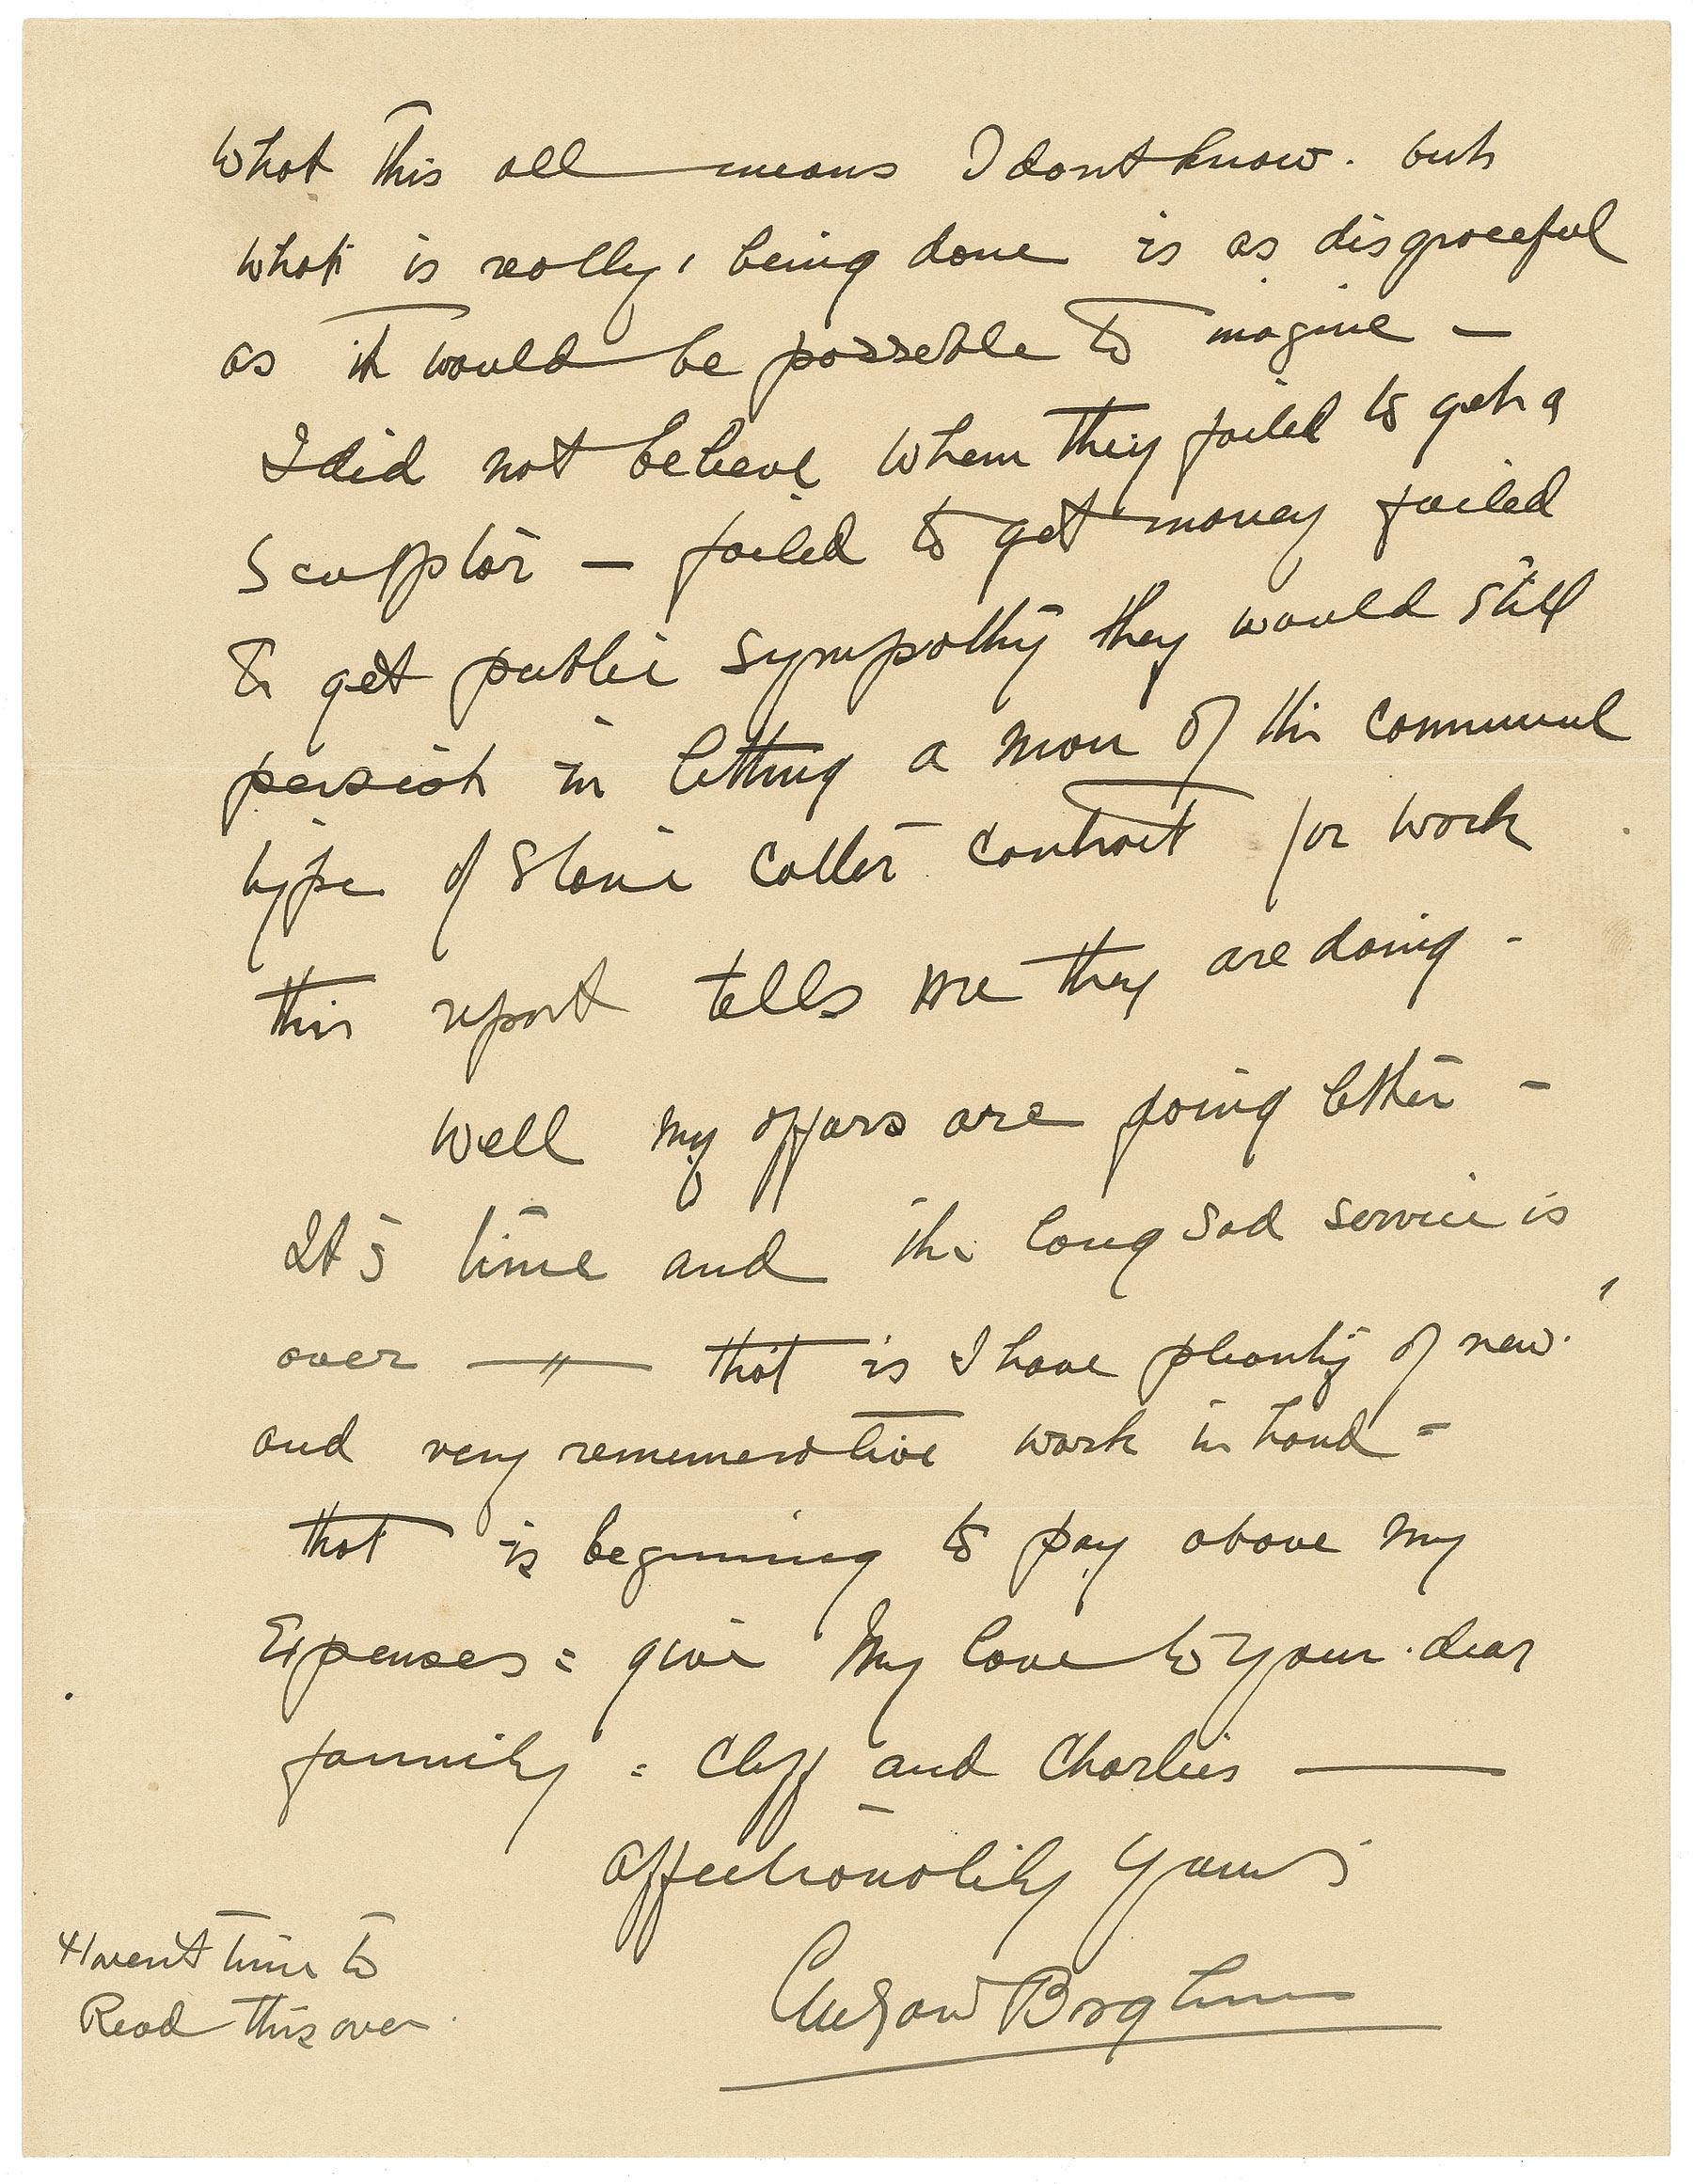 What this all means I dont know. but
what is really, being done is as disgraceful
as it would be possible to imagine –
I did not believe when they failed to get a
Sculptor – failed to get money failed
to get public sympathy they would still
persist in letting a man of the
type of Stone Cutter contract for work
this report tells me they are doing –
Well my affars are going better –
It's time and the long sad service is
over —//— that is I have plenty of new
and very remunerative work in hand =
that is beginning to pay above my
Expenses = give my love to your dear
family = Cliff and Charlies —
affectionately Yours
Gutzon Borglum
Havent time to
Read this over